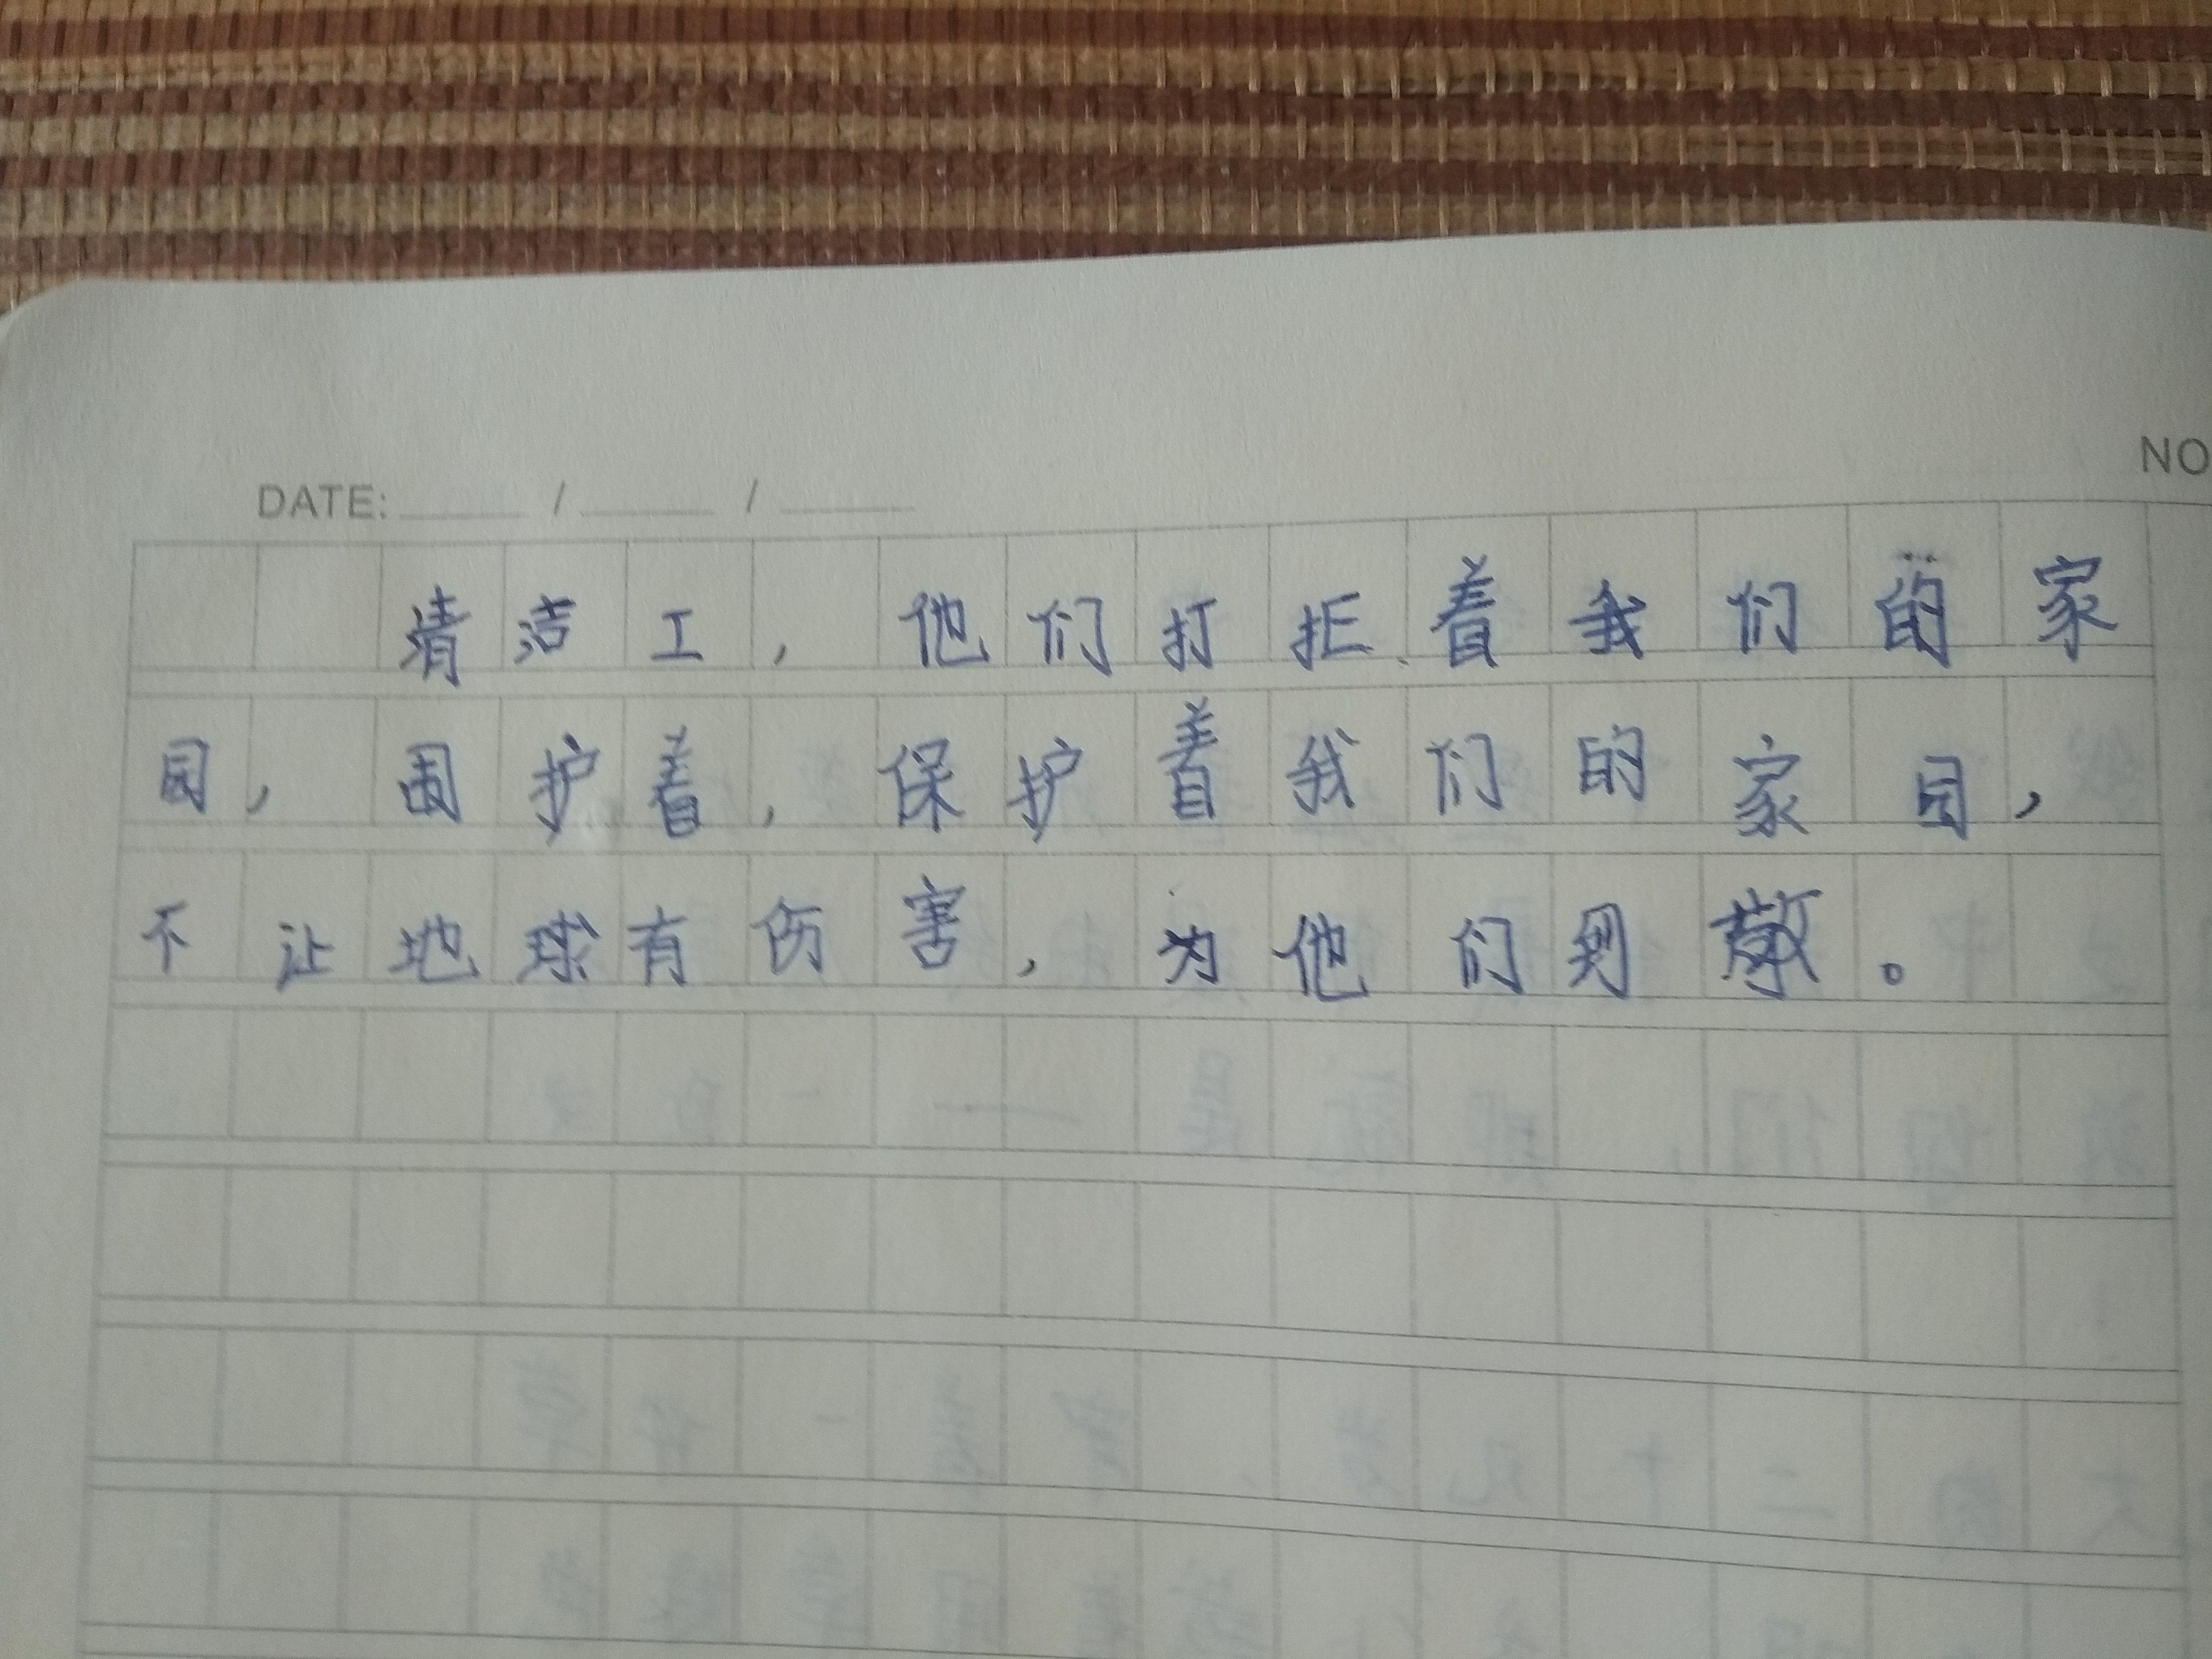 DATE: / /
NO
清洁工，他们打拒着我们的家
园，围护着，保护着我们的家园，
不让地球有伤害，为他们到敬。